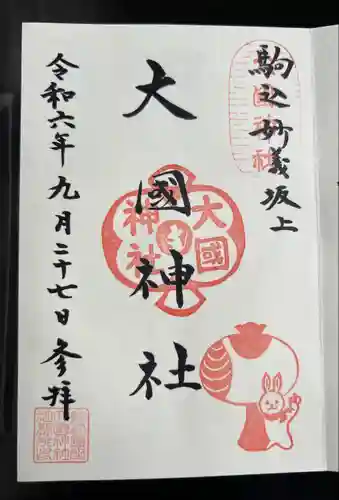 駒込妙義坂上
大國神社
令和六年九月二十七日参拝
大國
神社